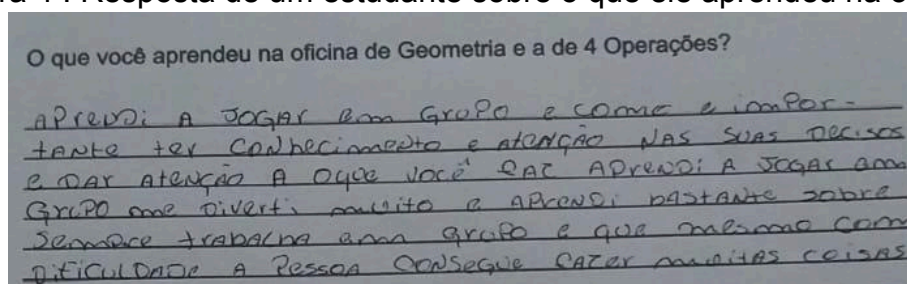 Resposta de um estudante sobre o que ele aprendeu na
O que você aprendeu na oficina de Geometria e a de 4 Operações?
APrendi A JOGAr em GruPO e como e imPor-
tANte ter CONhecimento e AtENÇÃO NAS SUAS Decisos
e DAr AteNÇÃO A Oque você FAZ APreNDi A JOGAr am
GruPO me Diverti muito e APreNDi bAStANte sobre
Sempre trabalha am gruPo e que mesmo com
DificulDADe A PessoA CONSegue fAzer muitAs coisAs